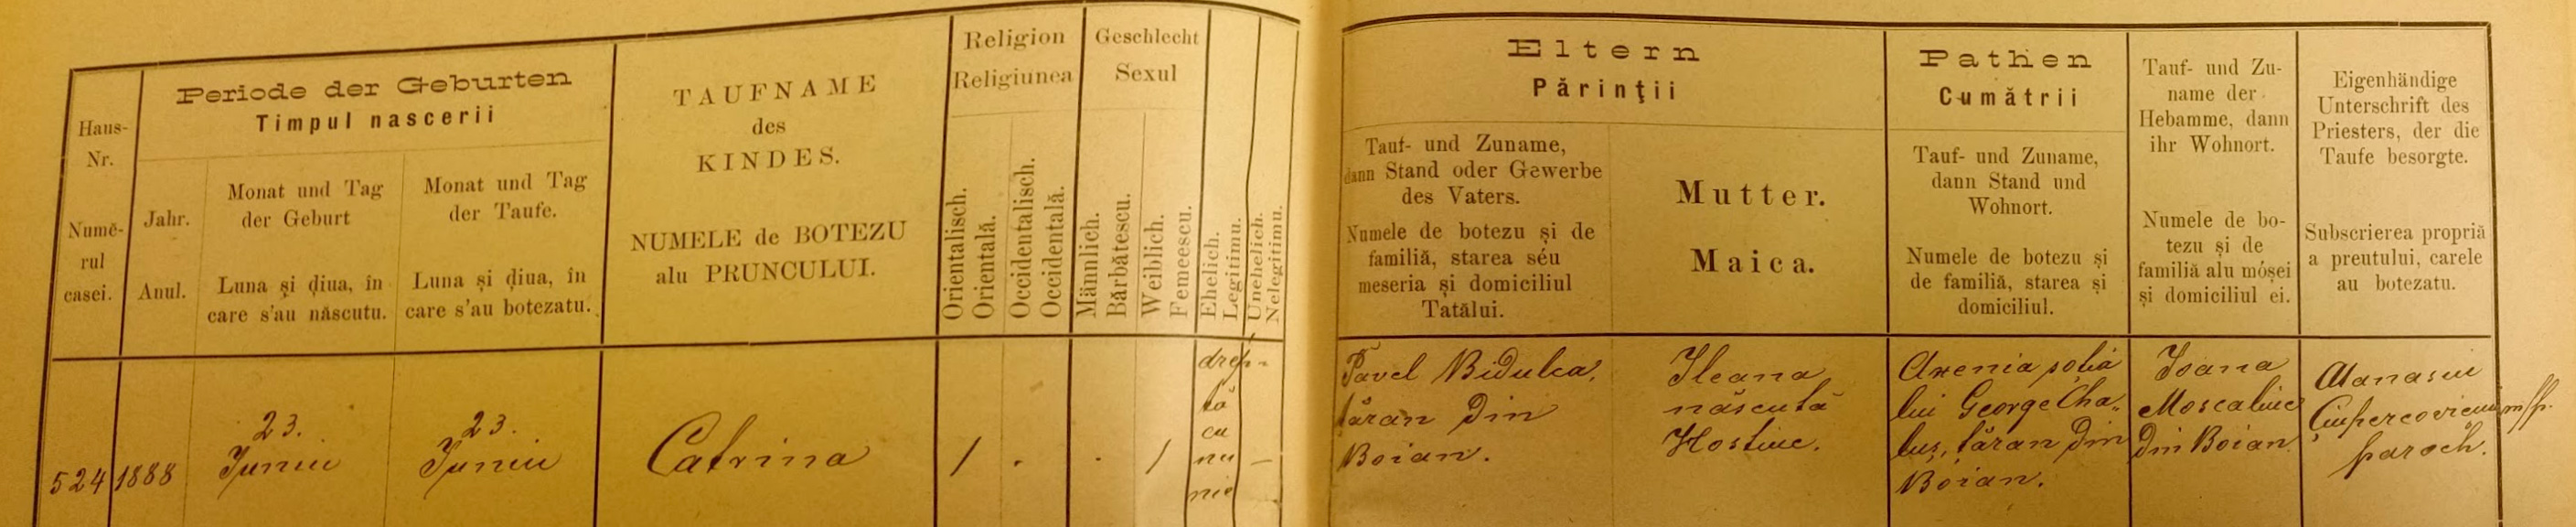 Haus-
Nr.
Numĕ-
rul
casei.
Periode der Geburten
Timpul nascerii
Jahr.
Anul.
Monat und Tag
der Geburt
Luna și ḍiua, în
care s'au născutu.
Monat und Tag
der Taufe.
Luna și ḍiua, în
care s'au botezatu.
TAUFNAME
des
KINDES.
NUMELE de BOTEZU
alu PRUNCULUI.
Religion
Religiunea
Orientalisch.
Orientală.
Occidentalisch.
Occidentală.
Geschlecht
Sexul
Männlich.
Bărbătescu.
Weiblich.
Femeescu.
Ehelich.
Legitimu.
Unehelich.
Nelegitimu.
Eltern
Părinţii
Tauf- und Zuname,
dann Stand oder Gewerbe
des Vaters.
Numele de botezu și de
familiă, starea séu
meseria și domiciliul
Tatălui.
Mutter.
Maica.
Pathen
Cumătrii
Tauf- und Zuname,
dann Stand und
Wohnort.
Numele de botezu și
de familiă, starea și
domiciliul.
Tauf- und Zu-
name der
Hebamme, dann
ihr Wohnort.
Numele de bo-
tezu și de
familiă alu móșei
și domiciliul ei.
Eigenhändige
Unterschrift des
Priesters, der die
Taufe besorgte.
Subscrierea propriă
a preutului, carele
au botezatu.
524
1888
23.
Juniu
23.
Juniu
Catrina
/
.
.
/
drep-
tă
cu
nu
nie
—
Pavel Bidulca,
țăran din
Boian.
Ileana
născută
Hostiuc.
Axenia soția
lui George Cha„
luș, țăran din
Boian.
Ioana
Moscaliuc
din Boian.
Atanasiu
Ciupercovici m/p.
paroch.